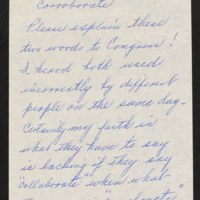 Corroborate
Please explain these
two words to Congress!
I heard both used
incorrectly by different
people on the same day-
Certainly my faith in
what they have to say
is lacking if they say
"collaborate" when what